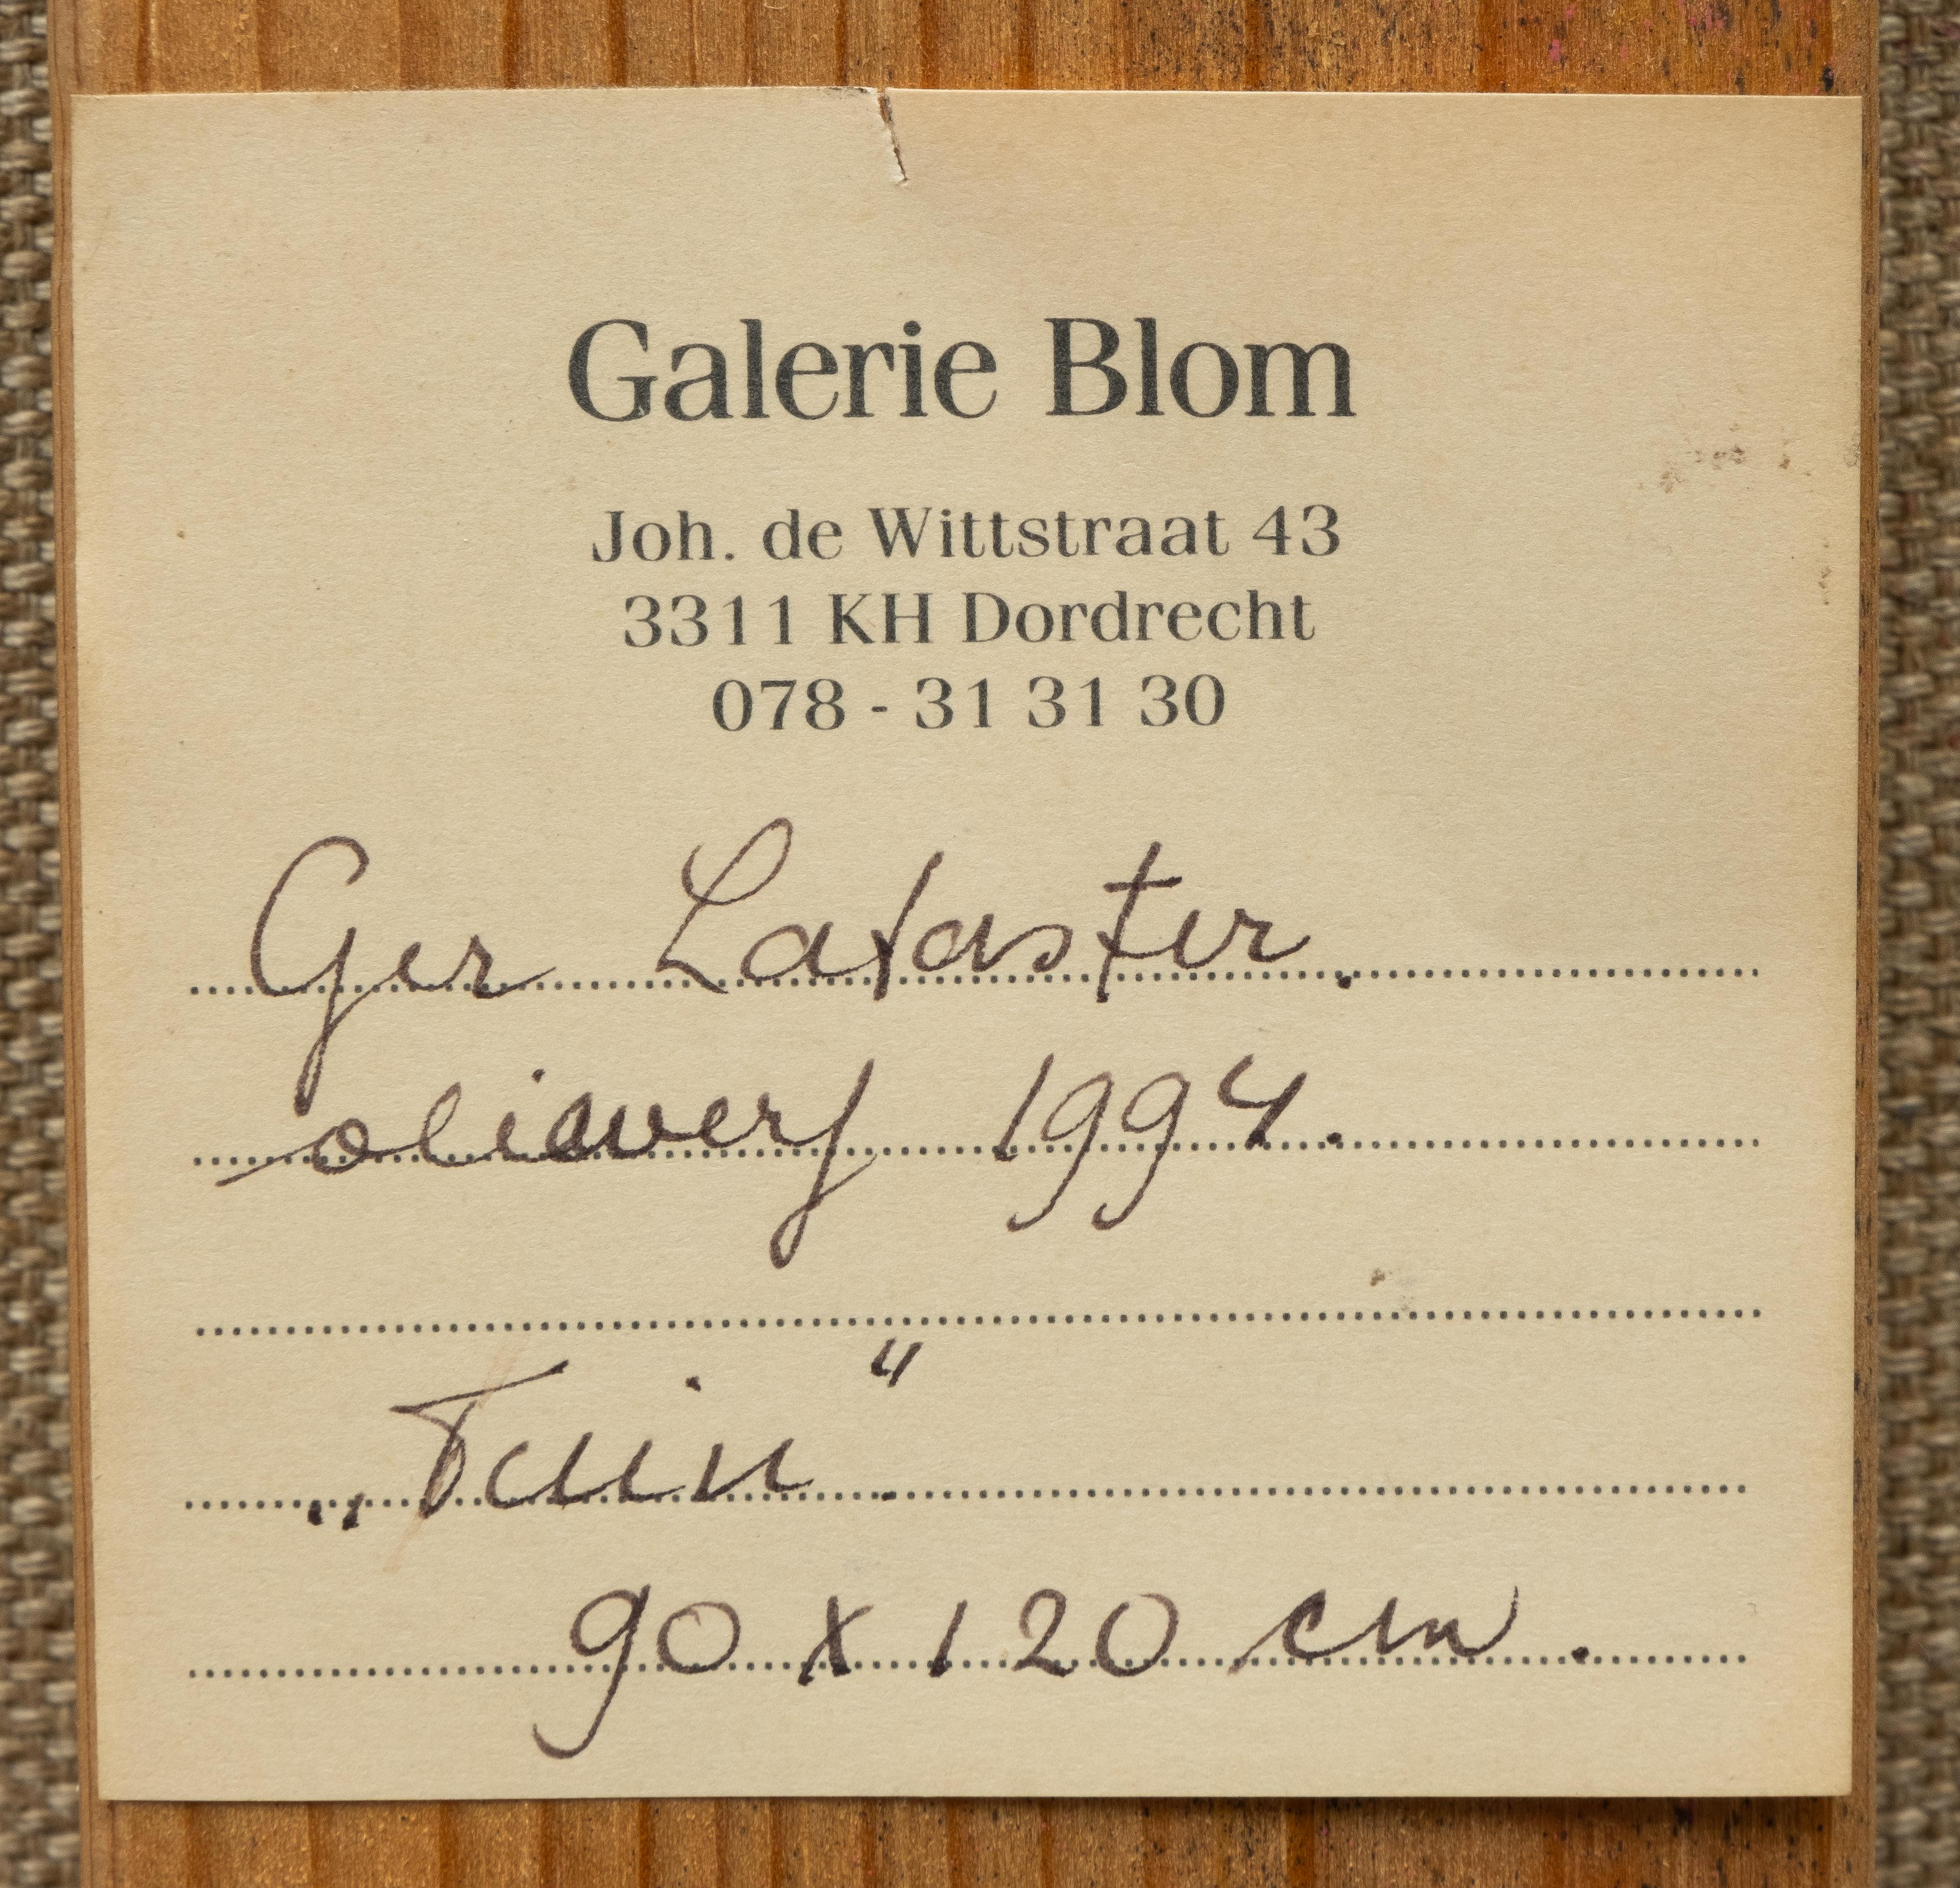 Galerie Blom
Joh. de Wittstraat 43
3311 KH Dordrecht
078 - 31 31 30
Ger Lataster.
olieverf 1994.
„Tuin".
90 x 120 cm.